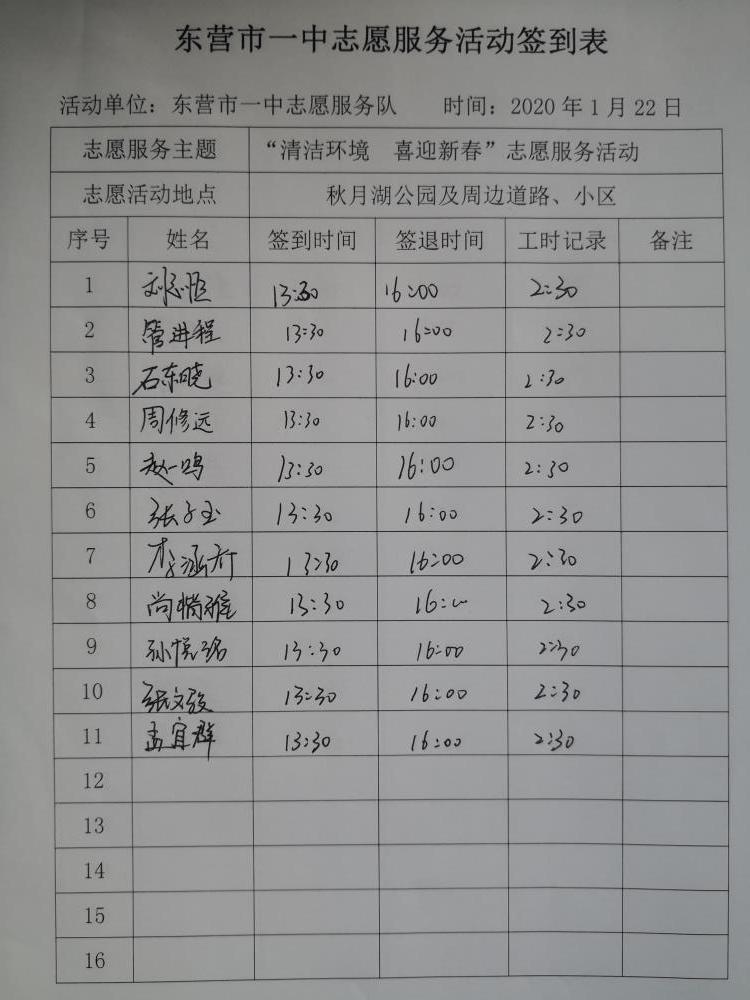 东营市一中志愿服务活动签到表
活动单位：东营市一中志愿服务队 时间：2020 年 1 月 22 日
志愿服务主题 “清洁环境 喜迎新春”志愿服务活动
志愿活动地点 秋月湖公园及周边道路、小区
序号 姓名 签到时间 签退时间 工时记录 备注
1 13:30 16:00 2:30
2 管进程 13:30 16:00 2:30
3 石东晓 13:30 16:00 2:30
4 周修远 13:30 16:00 2:30
5 赵一鸣 13:30 16:00 2:30
6 张子玉 13:30 16:00 2:30
7 李涵 13:30 16:00 2:30
8 尚 13:30 16: 2:30
9 孙悦 13:30 16:00 2:30
10 张文 13:30 16:00 2:30
11 孟宜群 13:30 16:00 2:30
12
13
14
15
16